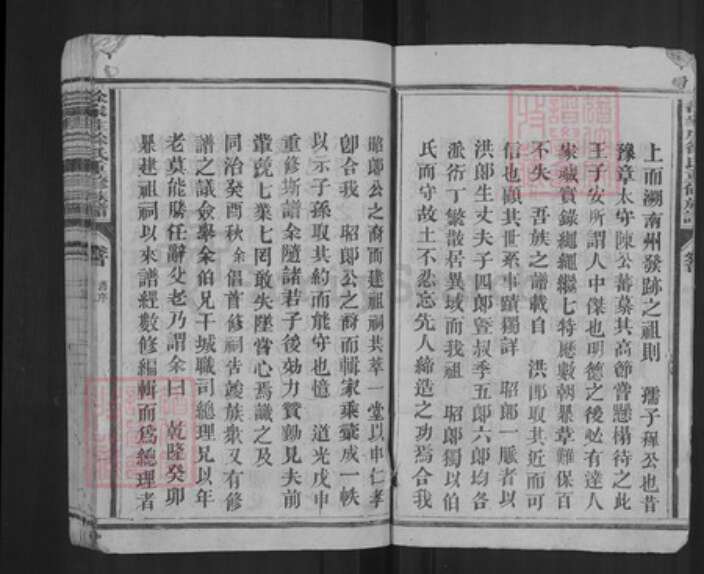 上而溯南州發跡之祖則 孺子穉公也昔
豫章太守陳公蕃慕其高節嘗懸榻待之此
王子安所謂人中傑也明德之後必有達人
家藏實錄繩繩繼七特歷數朝暴章難保百
不失 吾族之譜載自 洪郎取其近而可
信也顧其世系事蹟獨詳 昭郎一脈者以
洪郎生丈夫子四郎暨叔季五郎六郎均各
派衍丁繁散居異域而我祖 昭郎獨以伯
氏而守故土不忍忘先人締造之功焉合我
昭郎公之裔而建祖祠共萃一堂以申仁孝
卽合我 昭郎公之裔而輯家乘彚成一帙
以示子孫取其約而能守也憶 道光戊申
重修斯譜余隨諸君子後効力贊勷見夫前
輩兢七業七罔敢失墜嘗心焉識之及
同治癸酉秋余倡首修祠告竣族衆又有修
譜之議僉舉余伯兄干城職司總理兄以年
老莫能勝任辭父老乃謂余曰 乾隆癸卯
暴建祖祠以來譜經數修編輯而為總理者
卷首
舊序